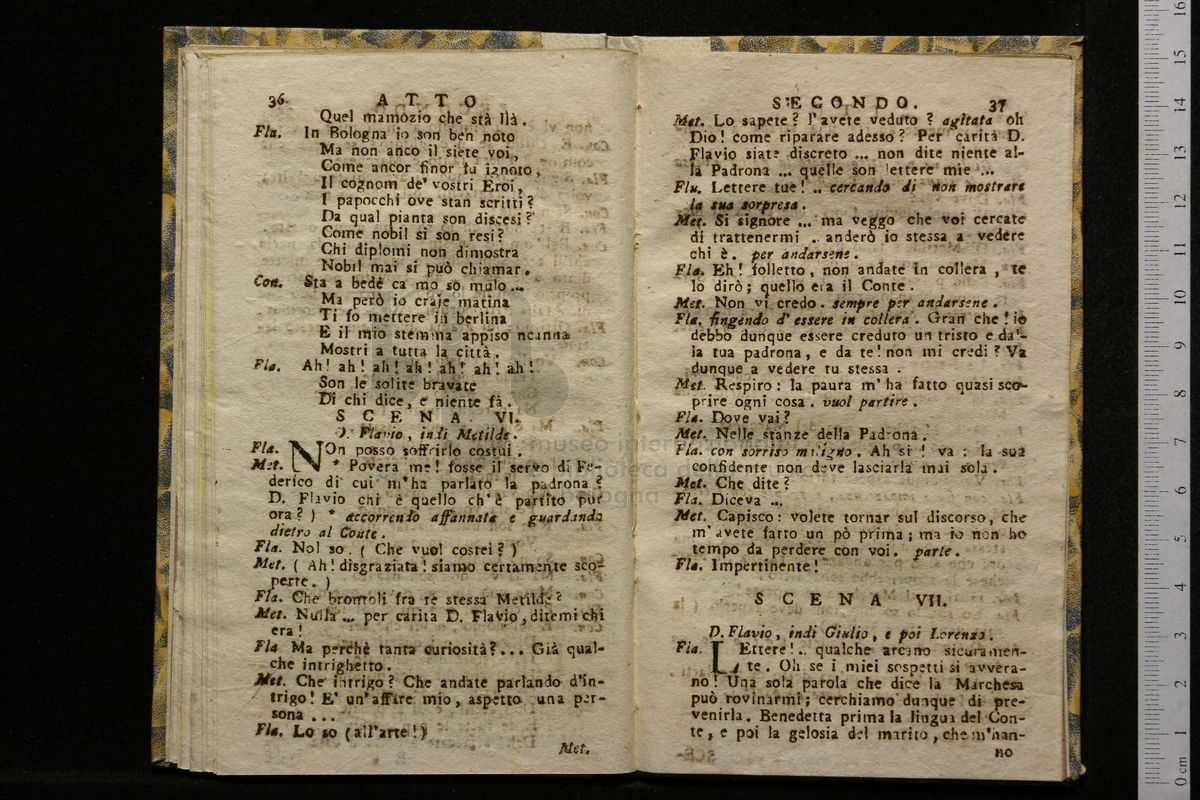 36 ATTO
Quel mamozio che stà llà.
Fla. In Bologna io son ben noto
Ma non anco il siete voi,
Come ancor finor fu ignoto,
Il cognom de' vostri Eroi,
I papocchi ove stan scritti?
Da qual pianta son discesi?
Come nobil si son resi?
Chi diplomi non dimostra
Nobil mai si può chiamar.
Con. Sta a bedè ca mo so mulo ...
Ma però io craje matina
Ti fo mettere in berlina
E il mio stemma appiso ncanna
Mostri a tutta la città.
Fla. Ah! ah! ah! ah! ah! ah! ah!
Son le solite bravate
Di chi dice, e niente fà.
SCENA VI.
D. Flavio, indi Metilde.
Fla. NOn posso soffrirlo costui.
Met. * Povera me! fosse il servo di Fe-
derico di cui m'ha parlato la padrona?
D. Flavio chi è quello ch'è partito pur
ora? ) * accorrendo affannata e guardando
dietro al Conte.
Fla. Nol so. ( Che vuol costei? )
Met. ( Ah! disgraziata! siamo certamente sco-
perte. )
Fla. Che brontoli fra te stessa Metilde?
Met. Nulla ... per carità D. Flavio, ditemi chi
era!
Fla Ma perchè tanta curiosità? ... Già qual-
che intrighetto.
Met. Che intrigo? Che andate parlando d'in-
trigo! E' un'affare mio, aspetto una per-
sona ...
Fla. Lo so (all'arte!)
Met.
SECONDO. 37
Met. Lo sapete? l'avete veduto? agitata oh
Dio! come riparare adesso? Per carità D.
Flavio siate discreto ... non dite niente al-
la Padrona ... quelle son lettere mie ...
Fla. Lettere tue! .. cercando di non mostrare
la sua sorpresa.
Met. Si signore ... ma veggo che voi cercate
di trattenermi .. anderò io stessa a vedere
chi è. per andarsene.
Fla. Eh! folletto, non andate in collera, te
lo dirò; quello era il Conte.
Met. Non vi credo. sempre per andarsene.
Fla. fingendo d'essere in collera. Gran che! io
debbo dunque essere creduto un tristo e dal-
la tua padrona, e da te! non mi credi? Va
dunque a vedere tu stessa.
Met. Respiro: la paura m'ha fatto quasi sco-
prire ogni cosa. vuol partire.
Fla. Dove vai?
Met. Nelle stanze della Padrona.
Fla. con sorriso maligno. Ah si! va: la sua
confidente non deve lasciarla mai sola.
Met. Che dite?
Fla. Diceva ...
Met. Capisco: volete tornar sul discorso, che
m'avete fatto un pò prima; ma io non ho
tempo da perdere con voi. parte.
Fla. Impertinente!
SCENA VII.
D. Flavio, indi Giulio, e poi Lorenzo.
Fla. LEttere! .. qualche arcano sicuramen-
te. Oh se i miei sospetti si avvera-
no! Una sola parola che dice la Marchesa
può rovinarmi; cerchiamo dunque di pre-
venirla. Benedetta prima la lingua del Con-
te, e poi la gelosia del marito, che m'han-
no